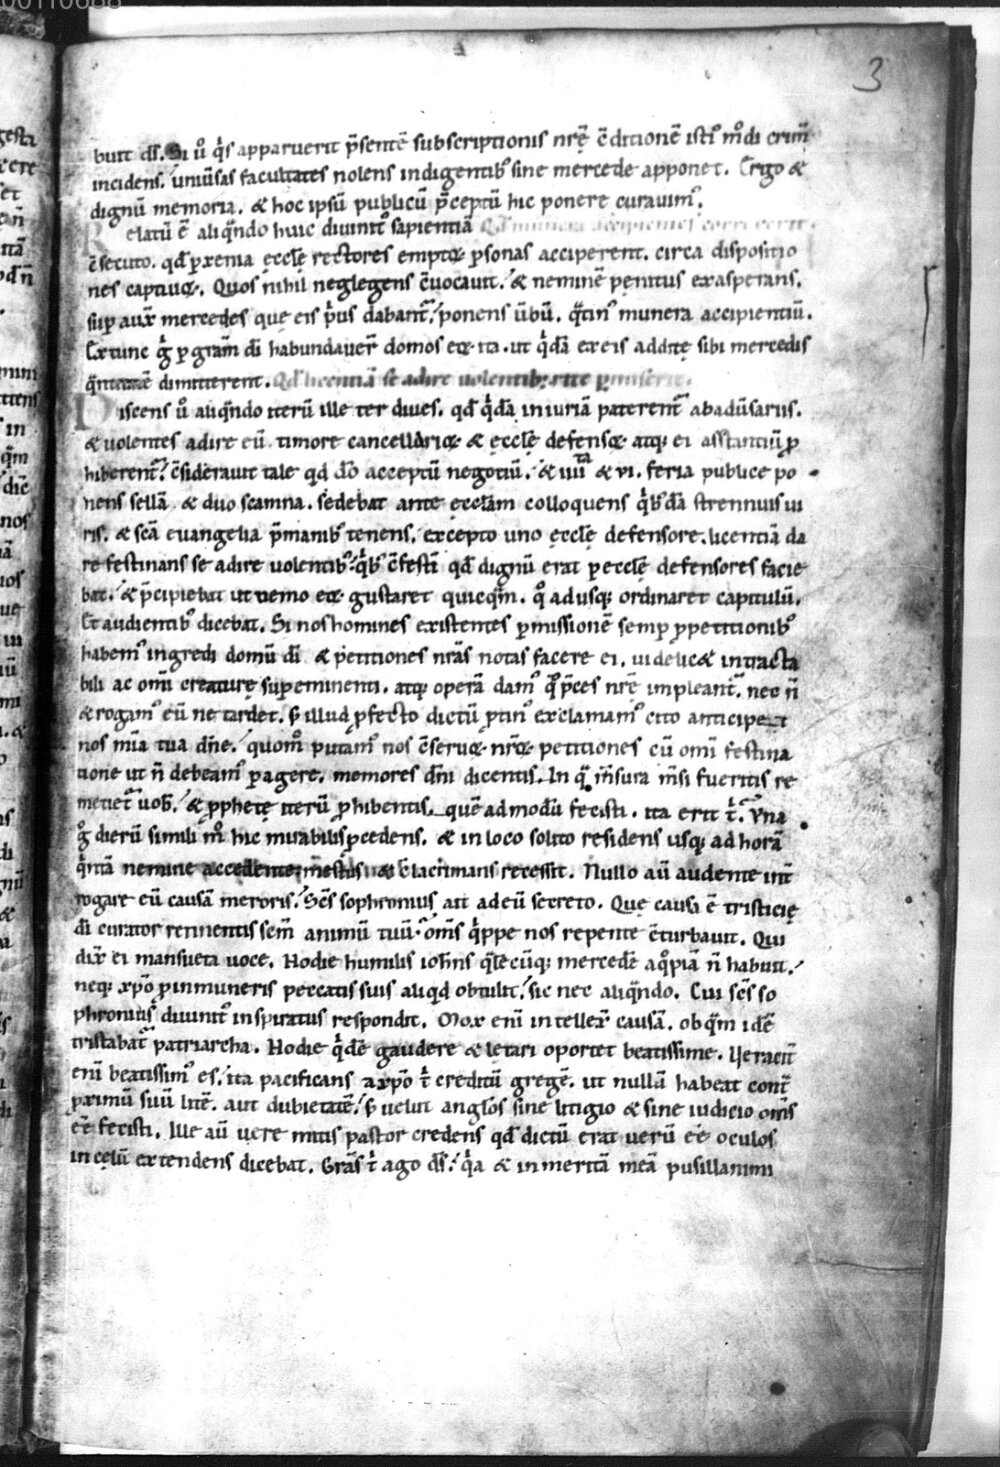 3
buit ds̄. Si ů q̇s apparuerit p̄sentē subscriptionis nr̄ę c̄ditionē isti᾽ m̊di crim̄
incidens. uniūsas facultates nolens indigentib᾽ sine mercede apponet. Ergo &
dignū memoria. & hoc ipsū publicū p̄ceptū hic ponere curauim᾽.
Relatū ē aliqn̄do huic diuinit᾽ sapientiā Qd̄ munera accipientes correxerit.
c̄secuto. qd̄ ꝑ xenia ęcclę rectores emptoꝝ ꝑsonas acciperent. circa dispositio
nes captiuoꝝ. Quos nihil neglegens c̄uocauit. & neminē penitus exasperans.
suꝑ aux̄ mercedes que eis ṗus dabant᷑. ponens ūbū. q̄tin᾽ munera accipientiū.
Ex tunc g̊ ꝑ gram̄ dī habundauer̄ domos eoꝝ ita. ut q̇dā ex eis additę sibi mercedis
q̄ntitatē dimitterent. Qd̄ licentiā se adire uolentib; rite ꝑmiserit.
Discens ů aliqn̄do iterū ille ter diues. qd̄ q̇dā iniuriā paterent᷑ ab adūsariis.
& uolentes adire eū. timore cancellarioꝝ & ęcclę defensoꝝ atq; ei asstantiū ꝓ
hiberent᷑. c̄siderauit tale qd̄ do̅ acceptū negotiū. & iiii ta & vi. feria publice po
nens sellā. & duo scamna. sedebat ante ęcclam̄ colloquens q̇b᾽dā strennuis ui
ris. & scā euangelia p̄ manib᾽ tenens. excepto uno ęcclę defensore. licentiā da
re festinans se adire uolentib᾽. q̇b᾽ c̄festī qd̄ dignū erat ꝑ ecclę defensores facie
bat. & p̄cipiebat ut nemo eoꝝ gustaret quicq̄m. q̊ adusq; ordinaret capitulū.
Et audientib᾽ dicebat. Si nos homines existentes ꝑmissionē semꝑ ꝓ petitionib᾽
habem᾽ ingredi domū dī & petitiones nrās notas facere ei. uidelic& intracta
bili ac omī creaturę suꝑeminenti. atq; operā dam᾽ q̊ p̄ces nrē impleant᷑. nec n̄
& rogam᾽ eū ne tardet. s̄ illud ꝓfecto dictū ꝓtin᾽ exclamam᾽ cito anticipent
nos mīa tua dn̄e. quom̊ putam᾽ nos c̄seruoꝝ nr̄oꝝ petitiones cū omī festina
tione ut n̄ debeam᾽ ꝑagere. memores dn̄i dicentis. In q̄ m̄sura m̄si fueritis re
metiet᷑ uob̄. & ꝓphetę iterū ꝓhibentis. quē ad modū fecisti. ita erit t̄. Vna
g̊ dierū simili m̊ hic mirabilis ꝓcedens. & in loco solito residens usq; ad horā
q̇ntā nemine accedente mestus & lacrimans recessit. Nullo aū audente int̄
rogare eū causā meroris. Scs̄ sophronius ait ad eū secreto. Que causa ē tristicię
dī curator retinentis sem̄ animū tuū. om̄s q̇ppe nos repente c̄turbauit. Qui
dix̄ ei mansueta uoce. Hodie humilis ioh̄ns q̄lēcūq; mercedē a q̊piā n̄ habuit.
neq; xp̄o ꝓ inmuneris peccatis suis aliqd̄ obtulit. sic nec aliqn̄do. Cui scs̄ so
phronius diuinit᾽ inspiratus respondit. Mox enī intellex̄ causā. ob q̄m idē
tristabat᷑ patriarcha. Hodie q̇dē gaudere & lętari oportet beatissime. Ueracit̄
enī beatissim᾽ es. ita pacificans a xp̄o t̄ creditū gregē. ut nullā habeat cont̄
ꝓximū suū litē. aut dubietatē. s̄ uelut anglos sine litigio & sine iudicio om̄s
ēe fecisti. Ille aū uere mitis pastor credens qd̄ dictū erat uerū ēe oculos
in cęlū extendens dicebat. Grās t̄ ago ds̄. q̇a & inmeritā meā pusillanimi